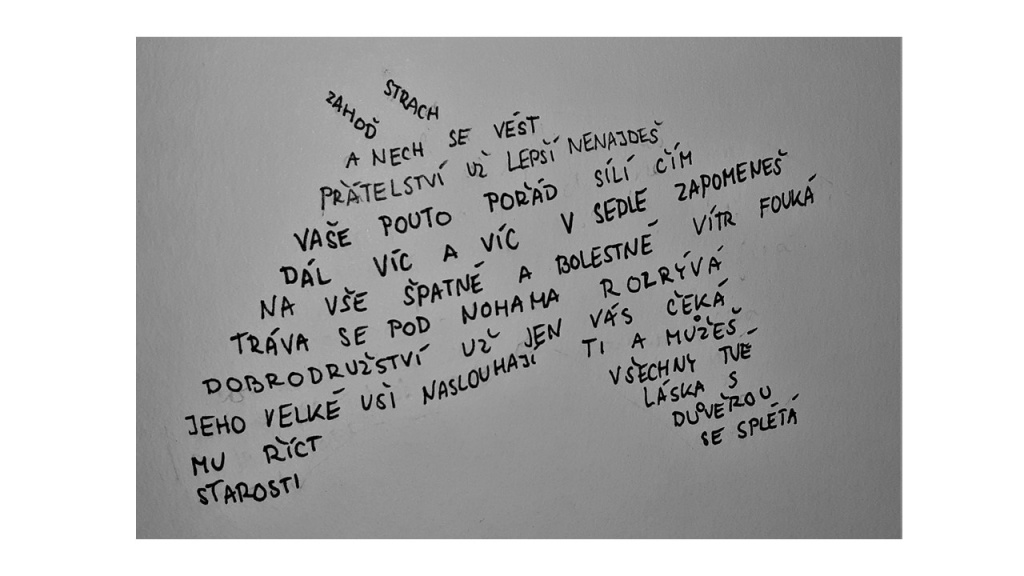 ZAHOĎ STRACH
A NECH SE VÉST
PŘÁTELSTVÍ UŽ LEPŠÍ NENAJDEŠ
VAŠE POUTO POŘÁD SÍLÍ ČÍM
DÁL VÍC A VÍC V SEDLE ZAPOMENEŠ
NA VŠE ŠPATNÉ A BOLESTNÉ VÍTR FOUKÁ
TRÁVA SE POD NOHAMA ROZRÝVÁ
DOBRODRUŽSTVÍ UŽ JEN VÁS ČEKÁ
JEHO VELKÉ UŠI NASLOUHAJÍ TI A MŮŽEŠ
MU ŘÍCT VŠECHNY TVÉ
STAROSTI LÁSKA S
DŮVĚROU
SE SPLÉTÁ